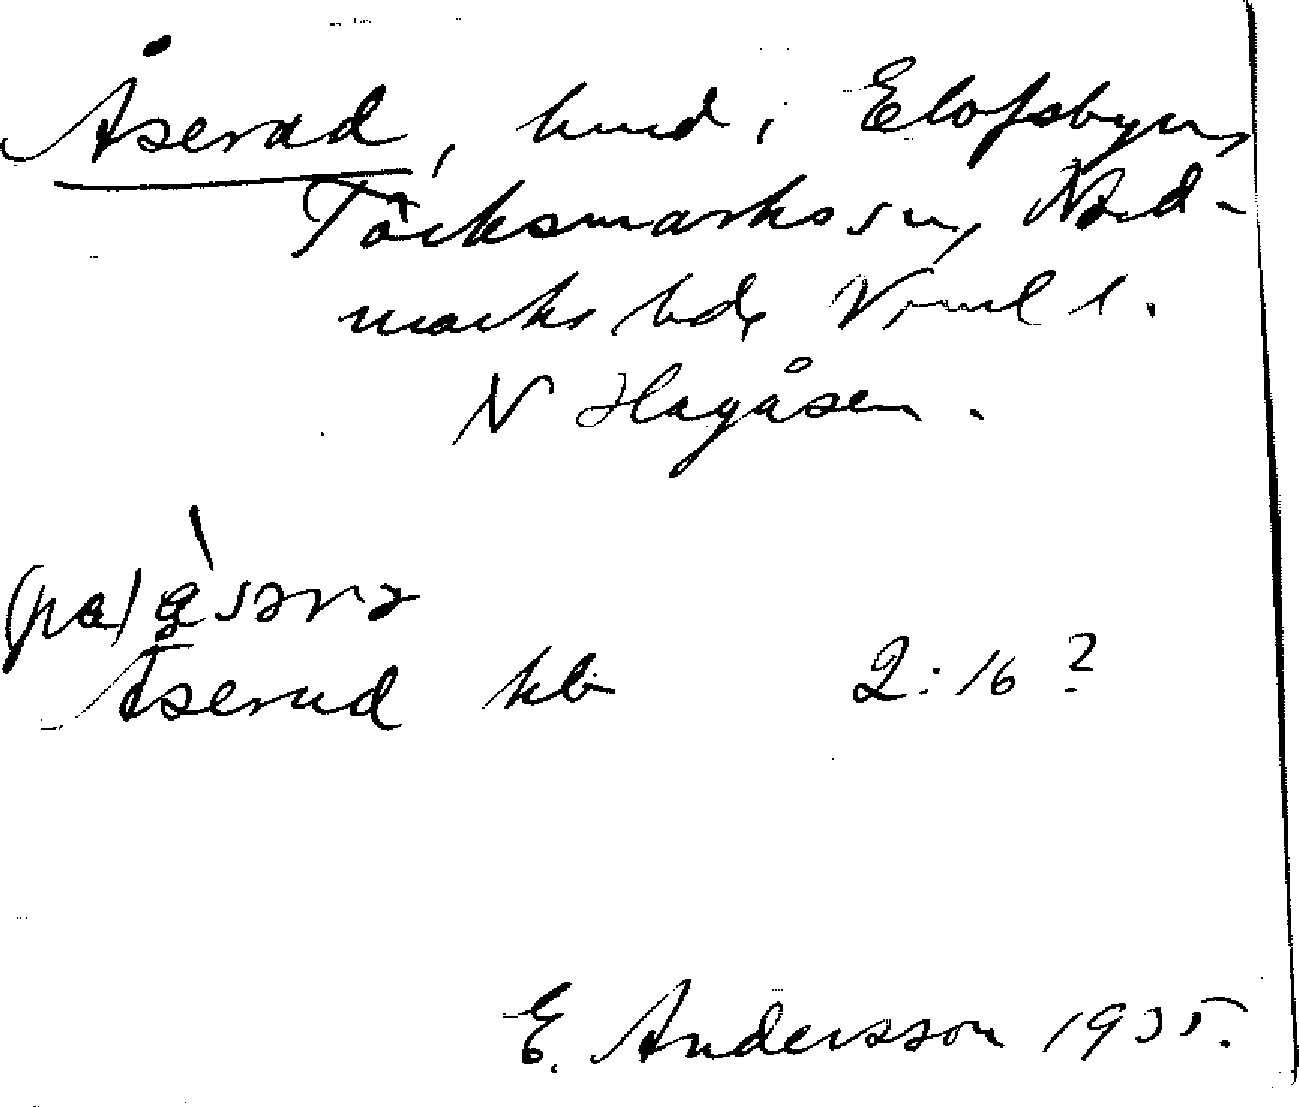 Åserud, hmd i Elofsbyn,
Töcksmarks sn, Nord-
marks hd, Vrml l.
N Hagåsen.
(på) åsərə
Åserud kb 2:16?
E. Andersson 1935.